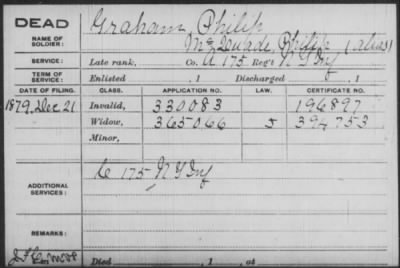 DEAD Graham, Philip
NAME OF SOLDIER: McQuade, Philip (alias)
SERVICE: Late rank, Co. A 175 Reg't N Y Inf
TERM OF SERVICE: Enlisted , 1 Discharged , 1
DATE OF FILING. CLASS. APPLICATION NO. LAW. CERTIFICATE NO.
1879, Dec 21 Invalid, 330083 196897
Widow, 365066 J 394753
Minor,
ADDITIONAL SERVICES: C 175 N Y Inf
REMARKS:
Died , 1 , at